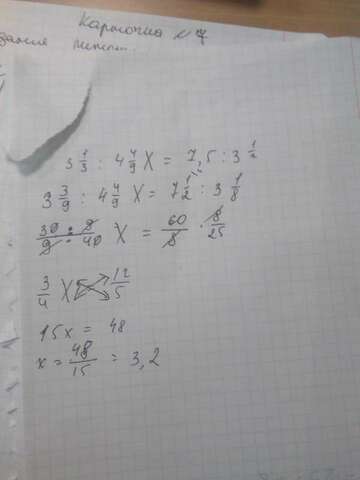 Карточка №7
3 1/3 : 4 4/9 X = 7,5 : 3 1/2
3 3/9 : 4 4/9 X = 7 1/2 : 3 1/8
30 : 9 / 9 : 40 X = 60/8 · 8/25
3/4 X 12/5
15x = 48
x = 48/15 = 3,2